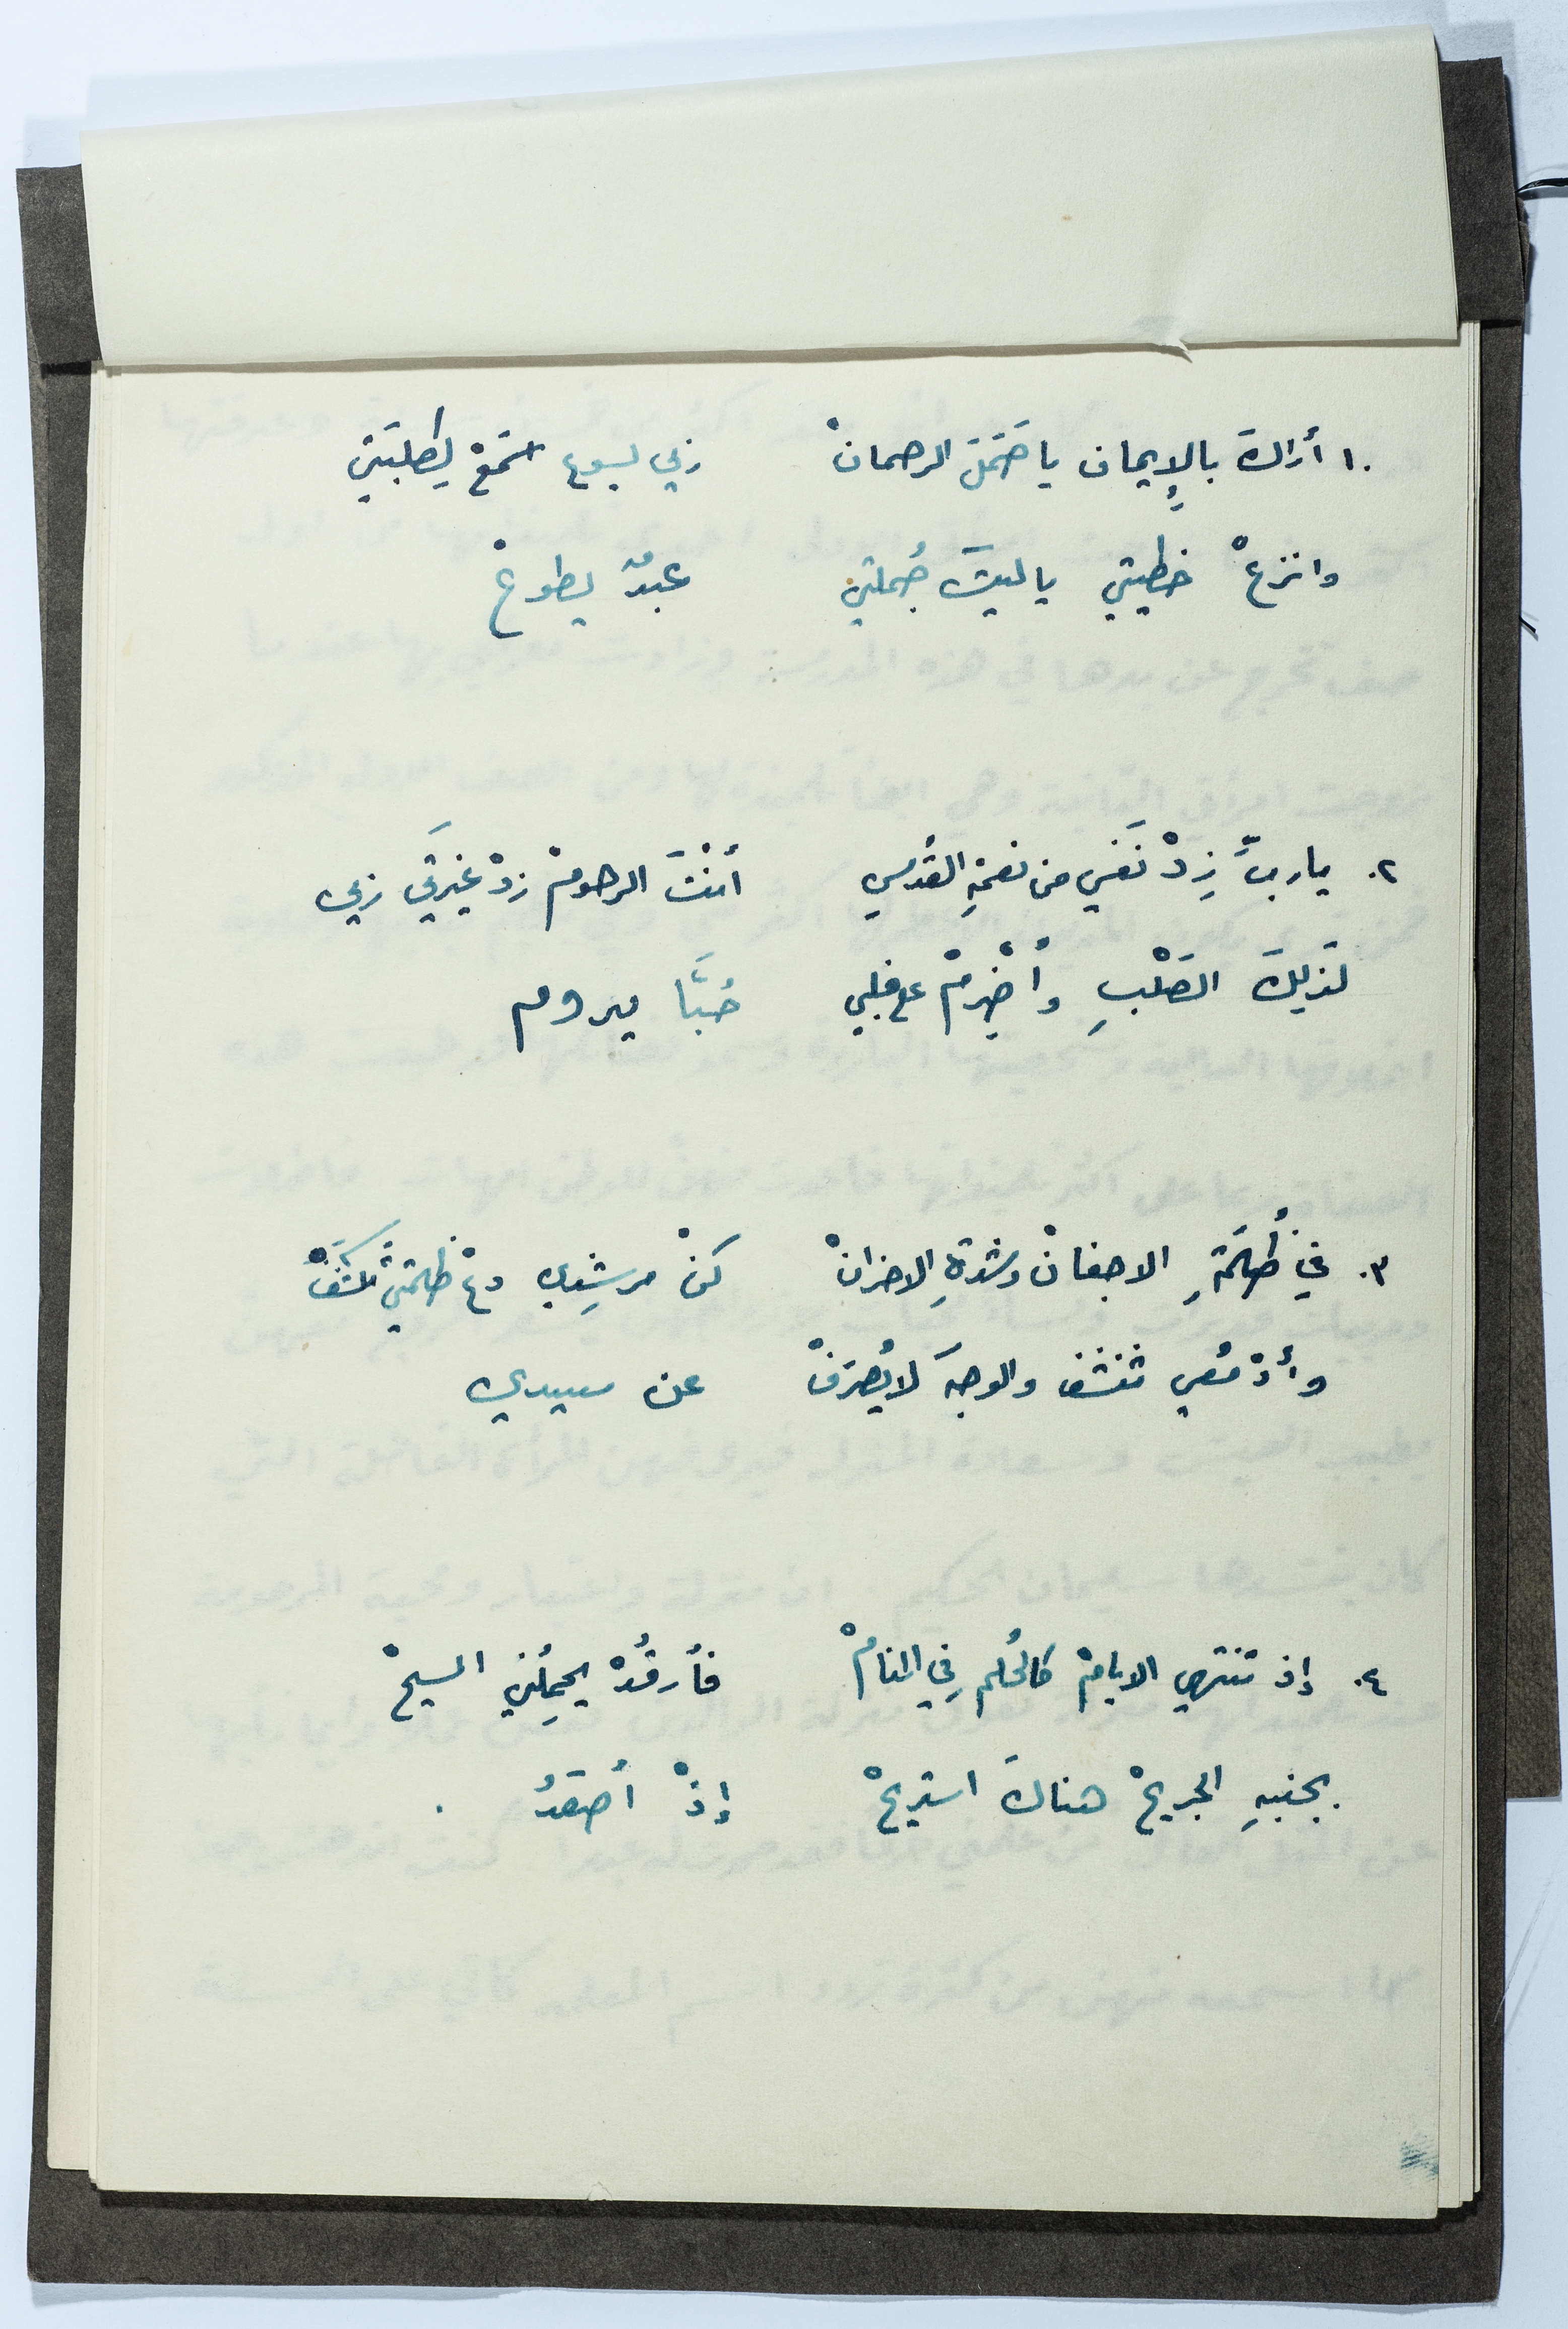 ١. أراكَ بالإِيمان يا حَمَلَ الرحمانْ ربي يسوع استَمعْ لِطلبَتي
وانزعْ خطيتي ياليتَ جُملتي عبدٌ يطوعْ
٢. ياربُّ زِدْ نَفسي من نعمَةِ القُدسِ أنْتَ الرحومْ زدْ غيرَتي ربي
لذلِكَ الصَلْبِ وأَضْرِمْ ع قلبي حُبًّا يدوم
٣. في ظُلمَةِ الاجفانْ وشدةِ الاحزانْ كنْ مرشِدي دعْ ظلمتي تُكشَفْ
وأدْمُعي تنشف والوجهَ لا يُصرَفْ عن سيدي
٤. إذ تنتهي الايامْ كالحُلم فِي المنامْ فأرقُدْ يحمِلُني المسيحْ
بجنبهِ الجريحْ هناكَ استريحْ إذْ أصعَدُ .